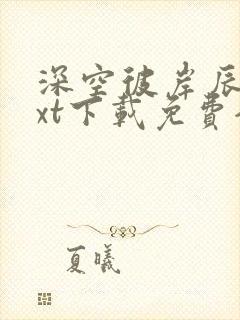 深空彼岸辰
xt下载免费
夏曦